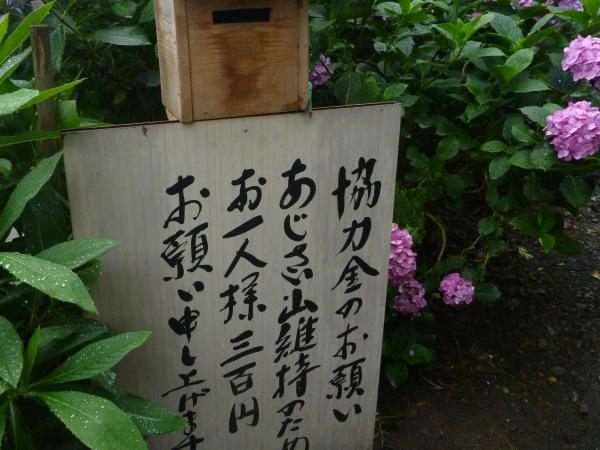 協力金のお願い
あじさい山維持のため
お一人様三百円
お願い申し上げます